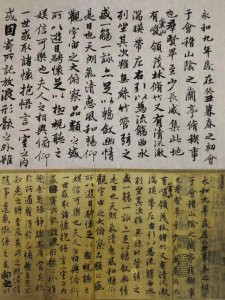 永和九年歲在癸丑暮春之初會
于會稽山陰之蘭亭脩禊事
也羣賢畢至少長咸集此地
有崇山峻領茂林脩竹又有清流激
湍暎帶左右引以為流觴曲水
列坐其次雖無絲竹管弦之
盛一觴一詠亦足以暢敘幽情
是日也天朗氣清惠風和暢仰
觀宇宙之大俯察品類之盛
所以遊目騁懷足以極視聽之
娛信可樂也夫人之相與俯仰
一世或取諸懷抱悟言一室之內
或因寄所託放浪形骸之外雖
永和九年歲在癸丑暮春之初會
于會稽山陰之蘭亭脩禊事
也羣賢畢至少長咸集此地
有崇山峻領茂林脩竹又有清流激
湍暎帶左右引以為流觴曲水
列坐其次雖無絲竹管弦之
盛一觴一詠亦足以暢敘幽情
是日也天朗氣清惠風和暢仰
觀宇宙之大俯察品類之盛
所以遊目騁懷足以極視聽之
娛信可樂也夫人之相與俯仰
一世或取諸懷抱悟言一室之內
或因寄所託放浪形骸之外雖